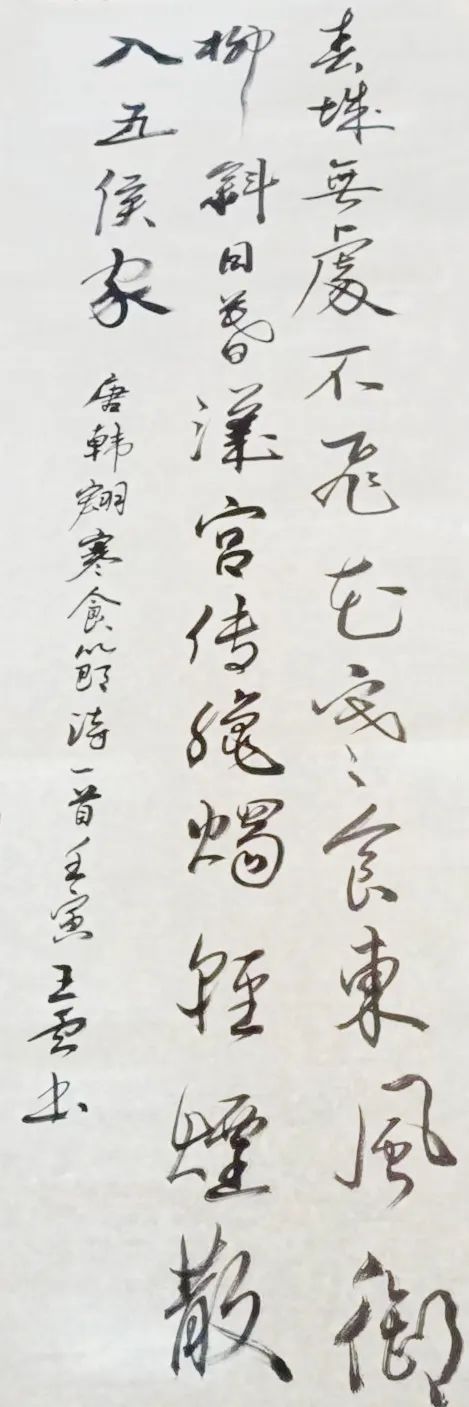 春城無處不飛花寒食東風御
柳斜日暮漢宮传蠟燭輕煙散
入五侯家
唐韩翃寒食節诗一首壬寅王雲书